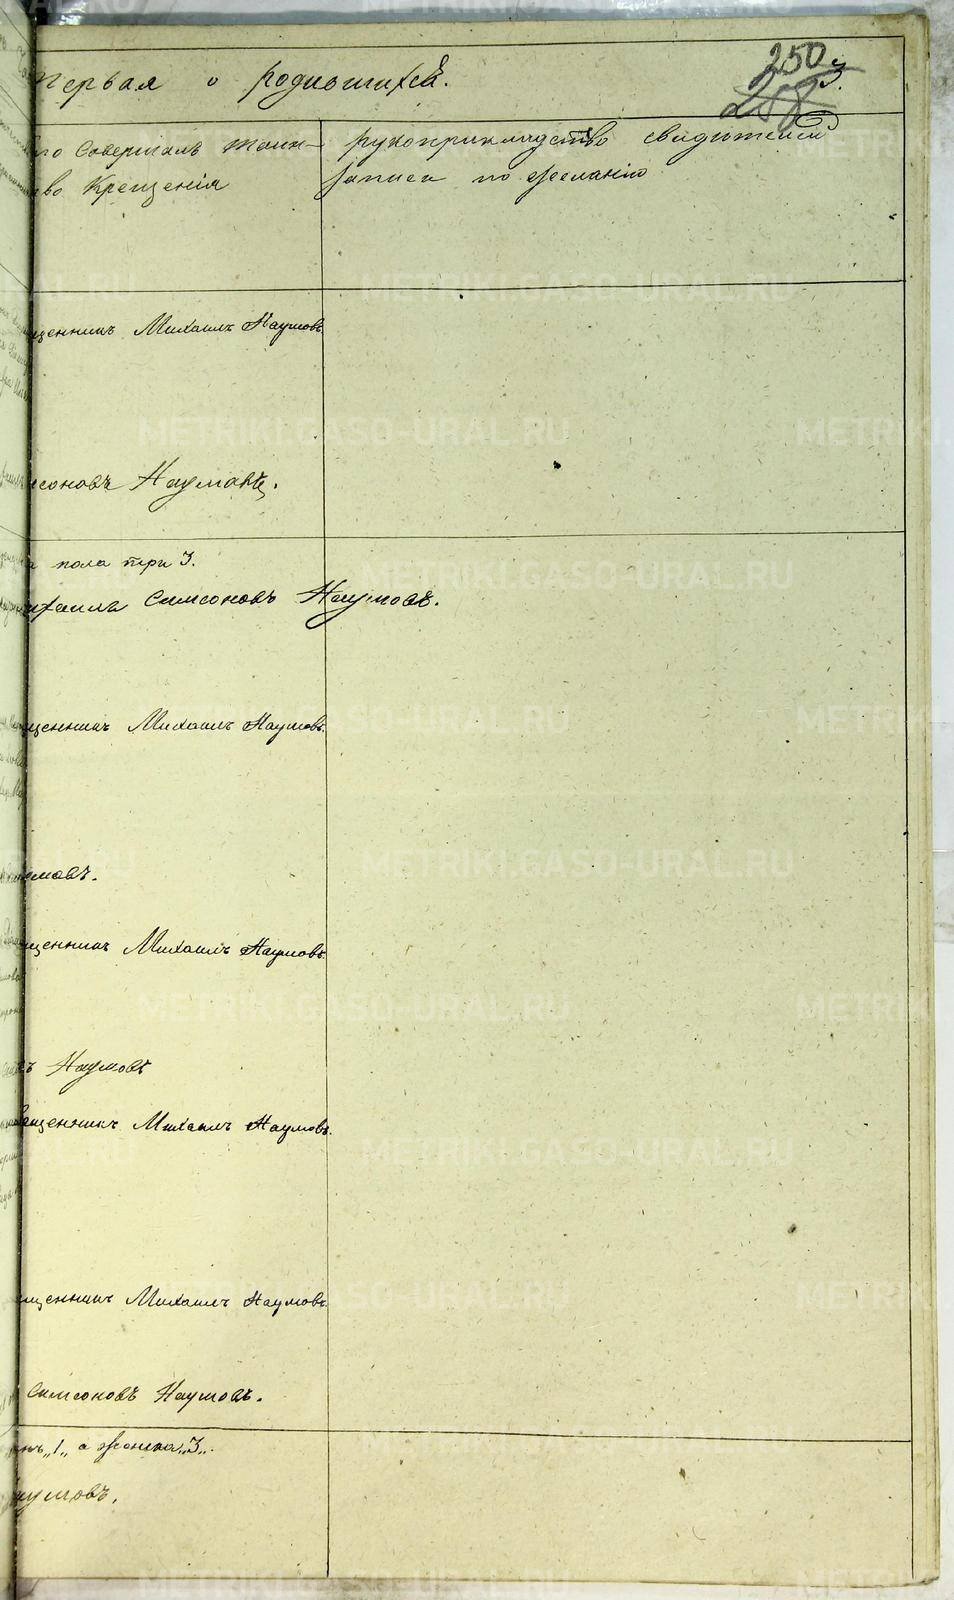 250
3.
258
Первая о родившихся.
Кто совершалъ таин-
ство Крещенія
рукоприкладство свидѣтелей
записи по желанію
щенникъ Михаилъ Наумовъ
соновъ Наумовъ.
пола три 3.
Михаилъ Симсоновъ Наумовъ.
щенникъ Михаилъ Наумовъ.
умовъ.
щенникъ Михаилъ Наумовъ.
ъ Наумовъ
вященникъ Михаилъ Наумовъ.
щенникъ Михаилъ Наумовъ.
Симсоновъ Наумовъ.
нъ „1„ а женска „3„.
аумовъ.
METRIKI.GASO-URAL.RU